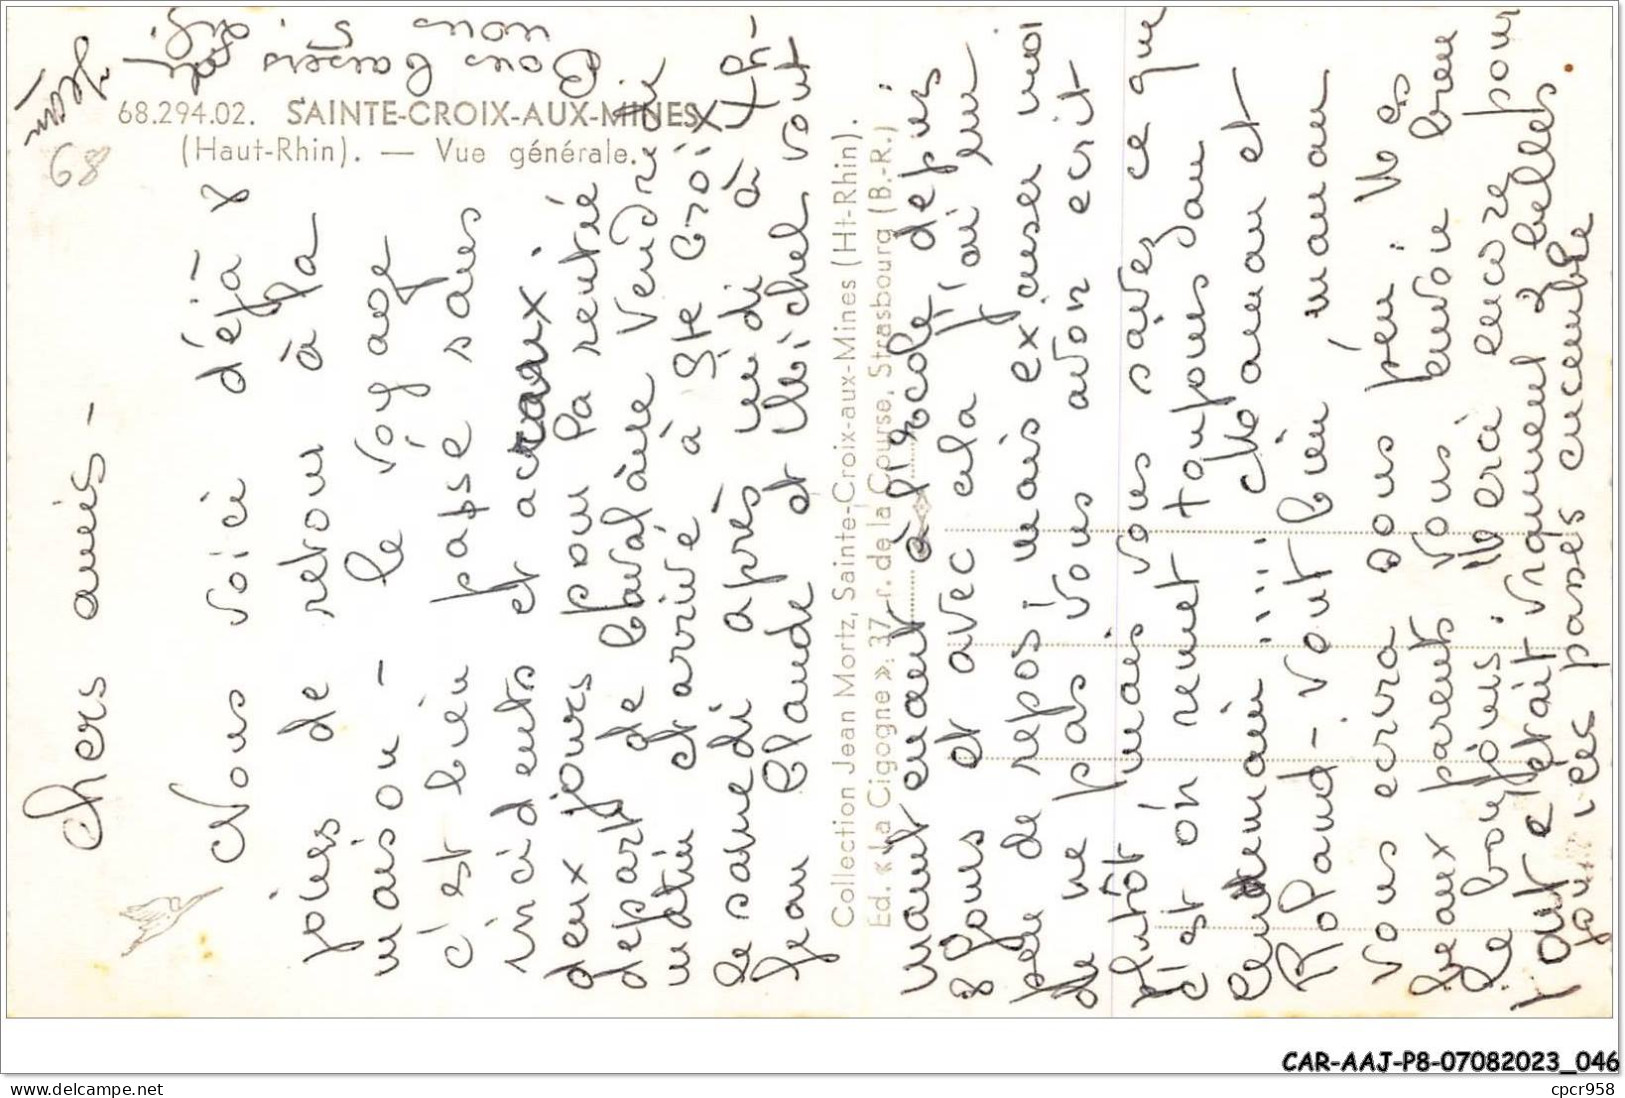 68.294.02. SAINTE-CROIX-AUX-MINES
(Haut-Rhin). — Vue générale.
68
Chers amis -
Nous voici déjà 8
jours de retour à la
maison - le voyage
c'est bien passé sans
incidents et acraux.
deux jours pour la rentrée
depart de Cavalaire Vendredi
matin et arrivé à Ste Croix
le samedi après midi à 4h-
Jean Claude et Michel vont
maintenant à l'école depuis
8 jours et avec cela j'ai eu
peu de repos; mais excuser moi
de ne pas vous avoir ecrit
plutôt mais vous savez ce que
c'est on remet toujours au
lendemain !!!! Maman et
Roland - vont bien maman
vous ecrira sous peu. Mes
beaux parents vous envoie bien
le bonjour. Merci encore pour
tout c'était vraiment 3 belles
jour ices passés ensemble
Bons Baisers de
nous
Collection Jean Mortz, Sainte-Croix-aux-Mines (Ht-Rhin).
Ed. « La Cigogne » : 37, r. de la Course, Strasbourg (B.-R.)
CAR-AAJ-P8-07082023_046
www.delcampe.net
cpcr958